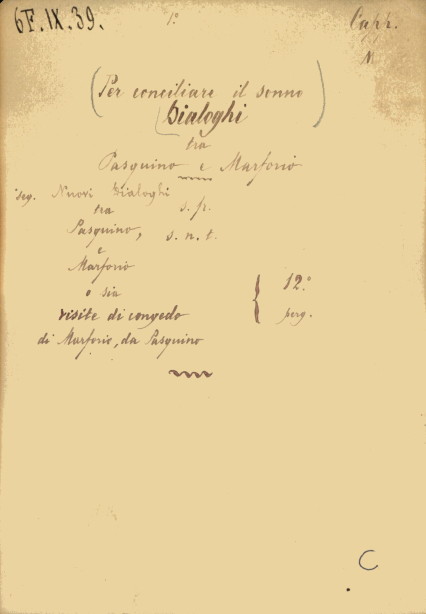 6F.IX.39. 1º Capp.
M
(Per conciliare il sonno)
Dialoghi
tra
Pasquino e Marforio
seg. Nuovi Dialoghi
tra s. pr.
Pasquino, s. n. t.
e
Marforio
o sia
visite di congedo
di Marforio, da Pasquino
12.º
perg.
C